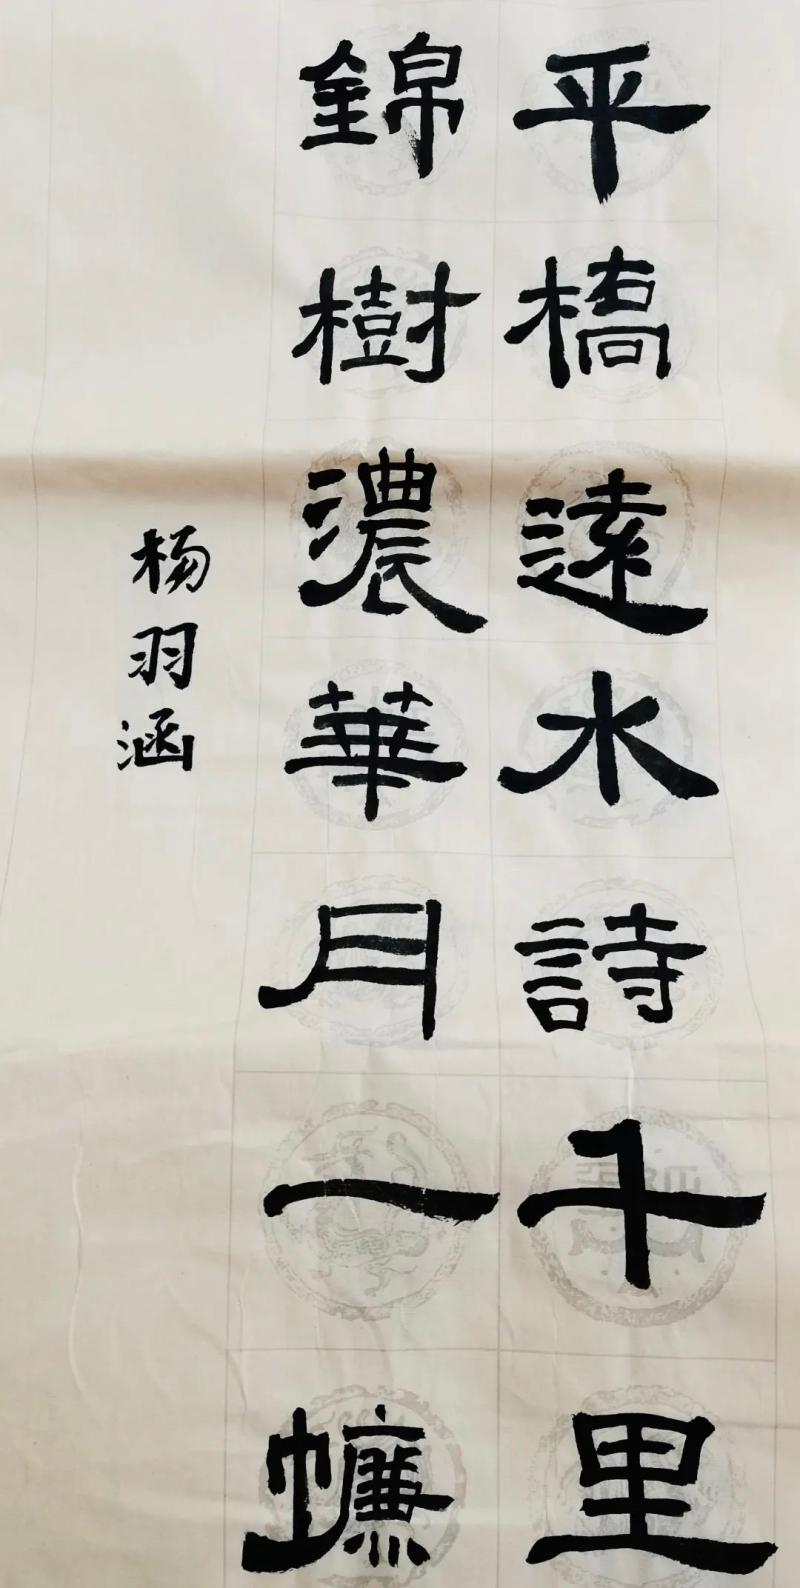 平橋遠水詩千里
錦樹濃華月一
杨羽涵